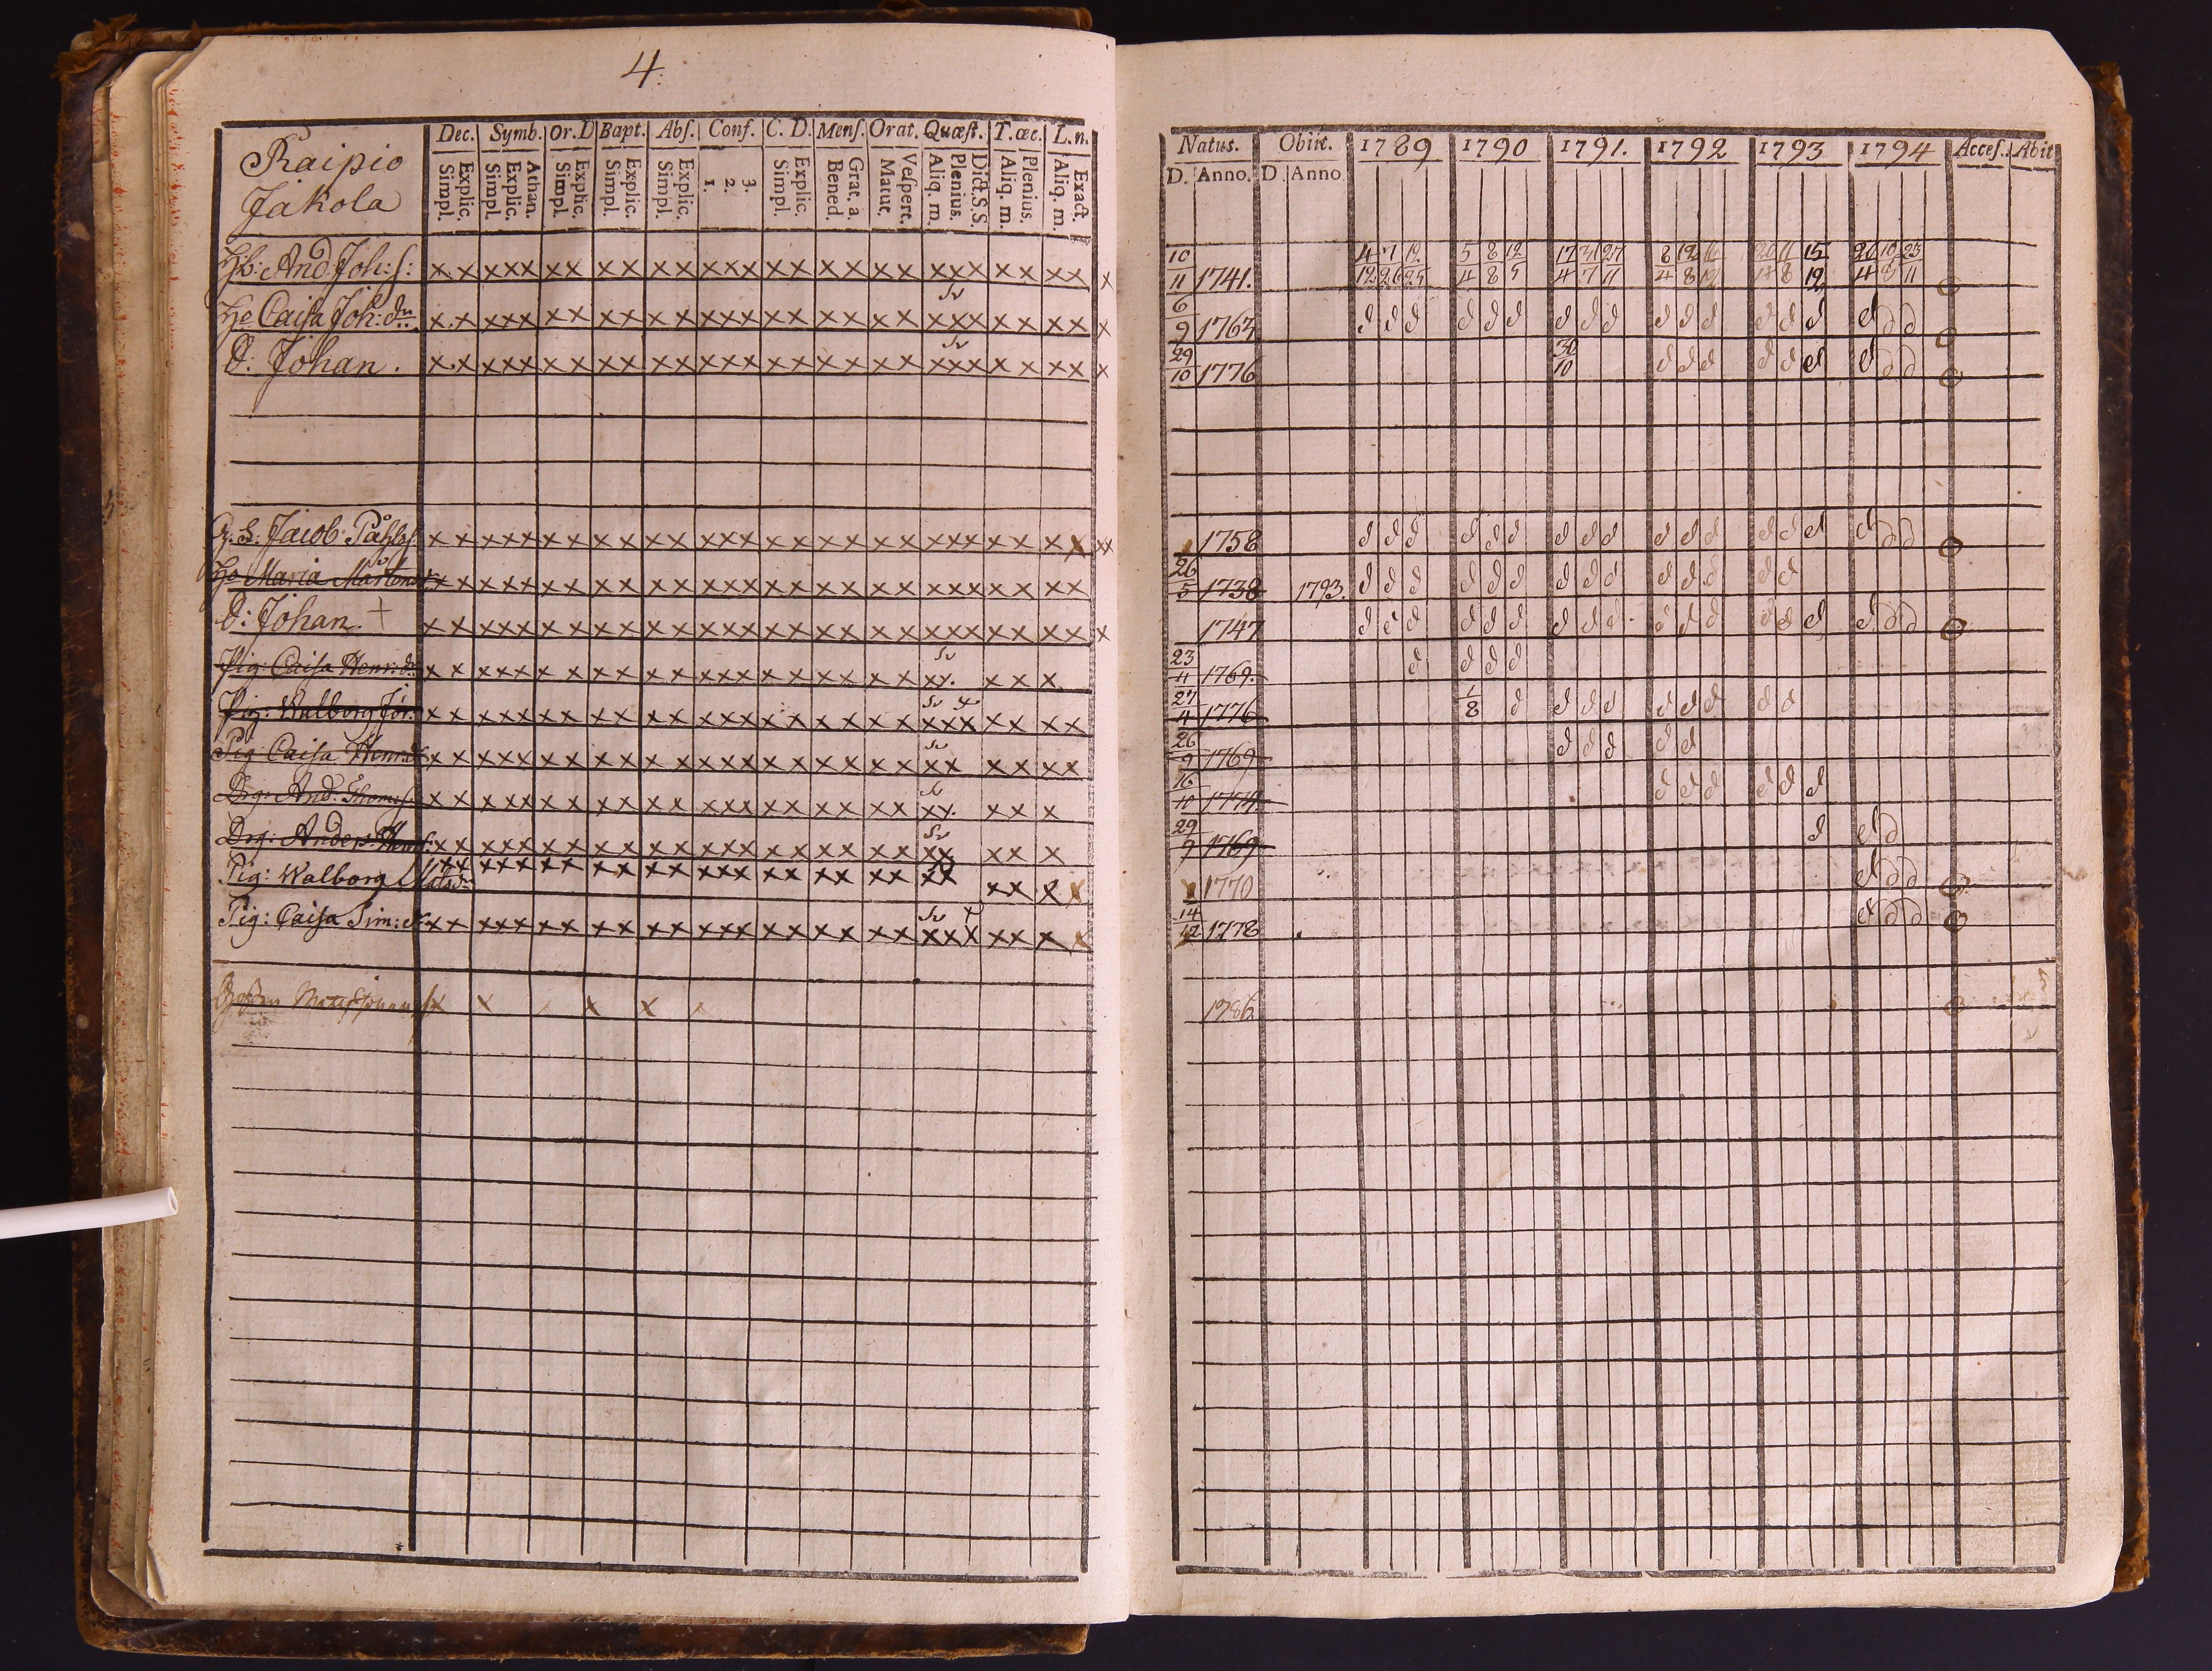 4.
Raipio
Jakola
Dec. Symb. Or. D Bapt. Abs. Conf. C. D. Mens. Orat. Quæst. T. œc. L. n.
Simpl. Explic. Simpl. Explic. Athan. Simpl. Explic. Simpl. Explic. Simpl. Explic. 1. 2. 3. Simpl. Explic. Bened. Grat. a. Matut. Vespert. Aliq. m. Plenius. Dict. S. S. Aliq. m. Plenius. Aliq. m. Exact.
Natus. Obiit. 1789 1790 1791. 1792 1793 1794 Acces. Abit
D. Anno. D. Anno
Hb: And. Joh: s: x x x x x x x x x x x x x x x x x x x x x x x x x x x x 10/11 1741. 4/12 7/26 12/25 5/4 8/8 12/9 17/4 31/7 27/11 8/4 12/8 11/8 15/12 10/8 23/11
Ho Caisa Joh: dr. x x x x x x x x x x x x x x x x x x x x x x x x x x x x 6/9 1763 d d d d d d d d d d d d d d d d d d
d. Johan. x x x x x x x x x x x x x x x x x x x x x x x x x x x x 29/10 1776 30/10 d d d d d d d d d
S: Jacob Påhls. x x x x x x x x x x x x x x x x x x x x x x x x x x x x x 1758 d d d d d d d d d d d d d d d d d d
Ho Maria x x x x x x x x x x x x x x x x x x x x x x x x x x x 26/5 1738 1793. d d d d d d d d d d d d d d
d: Johan + x x x x x x x x x x x x x x x x x x x x x x x x x x x x 1747 d d d d d d d d d d d d d d d d d d
Pig: Caisa Henr: dr x x x x x x x x x x x x x x x x x x x x x x. x x x 23/11 1769. d d d d
Pig: Walborg x x x x x x x x x x x x x x x x x x x x x x x x x x x 27/4 1776 1/8 d d d d d d d d d
Pig Caisa Henr: dr x x x x x x x x x x x x x x x x x x x x x x x x x x 26/9 1769 d d d d d
Drg: And: Thoms: x x x x x x x x x x x x x x x x x x x x x x. x x x 16/10 d d d d d d
Drg: Anders x x x x x x x x x x x x x x x x x x x x x x x x x 29/9 1769 d d d
Pig: Walborg Matsdr x x x x x x x x x x x x x x x x x x x x x x x x x x 1770 d d d
Pig: Caisa Sim: dr x x x x x x x x x x x x x x x x x x x x x x x x x x x 14/12 1778 d d d
Mats x x x x 1786